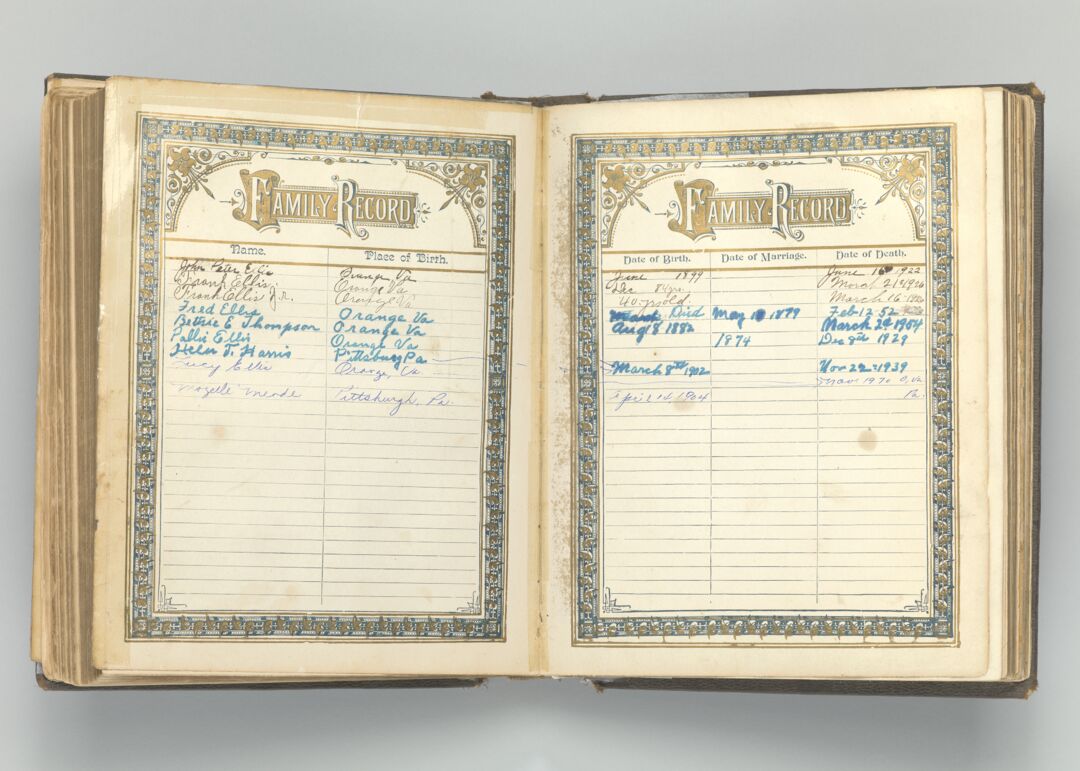 FAMILY RECORD
Name. Place of Birth.
John Peter Ellis Orange Va
Frank Ellis. Orange Va
Frank Ellis Jr. Orange Va
Fred Ellis Orange Va
Bettie E Thompson Orange Va
Pallie Ellis Orange Va
Helen T. Harris Pittsburg Pa
Lucy Ellis Orange, Va.
Mozelle Meade Pittsburgh, Pa.
FAMILY RECORD
Date of Birth. Date of Marriage. Date of Death.
June 1899 June 1922
Dec 84yrs. March 21
40 yrs old. March 16
Died May 1879 Feb 12 52
Aug 8 1882 March 24 1954
1874 Dec 8th 1929
March 8th 1902 Nov 22 1939
Nov 1970
April 14 1904 Pa.